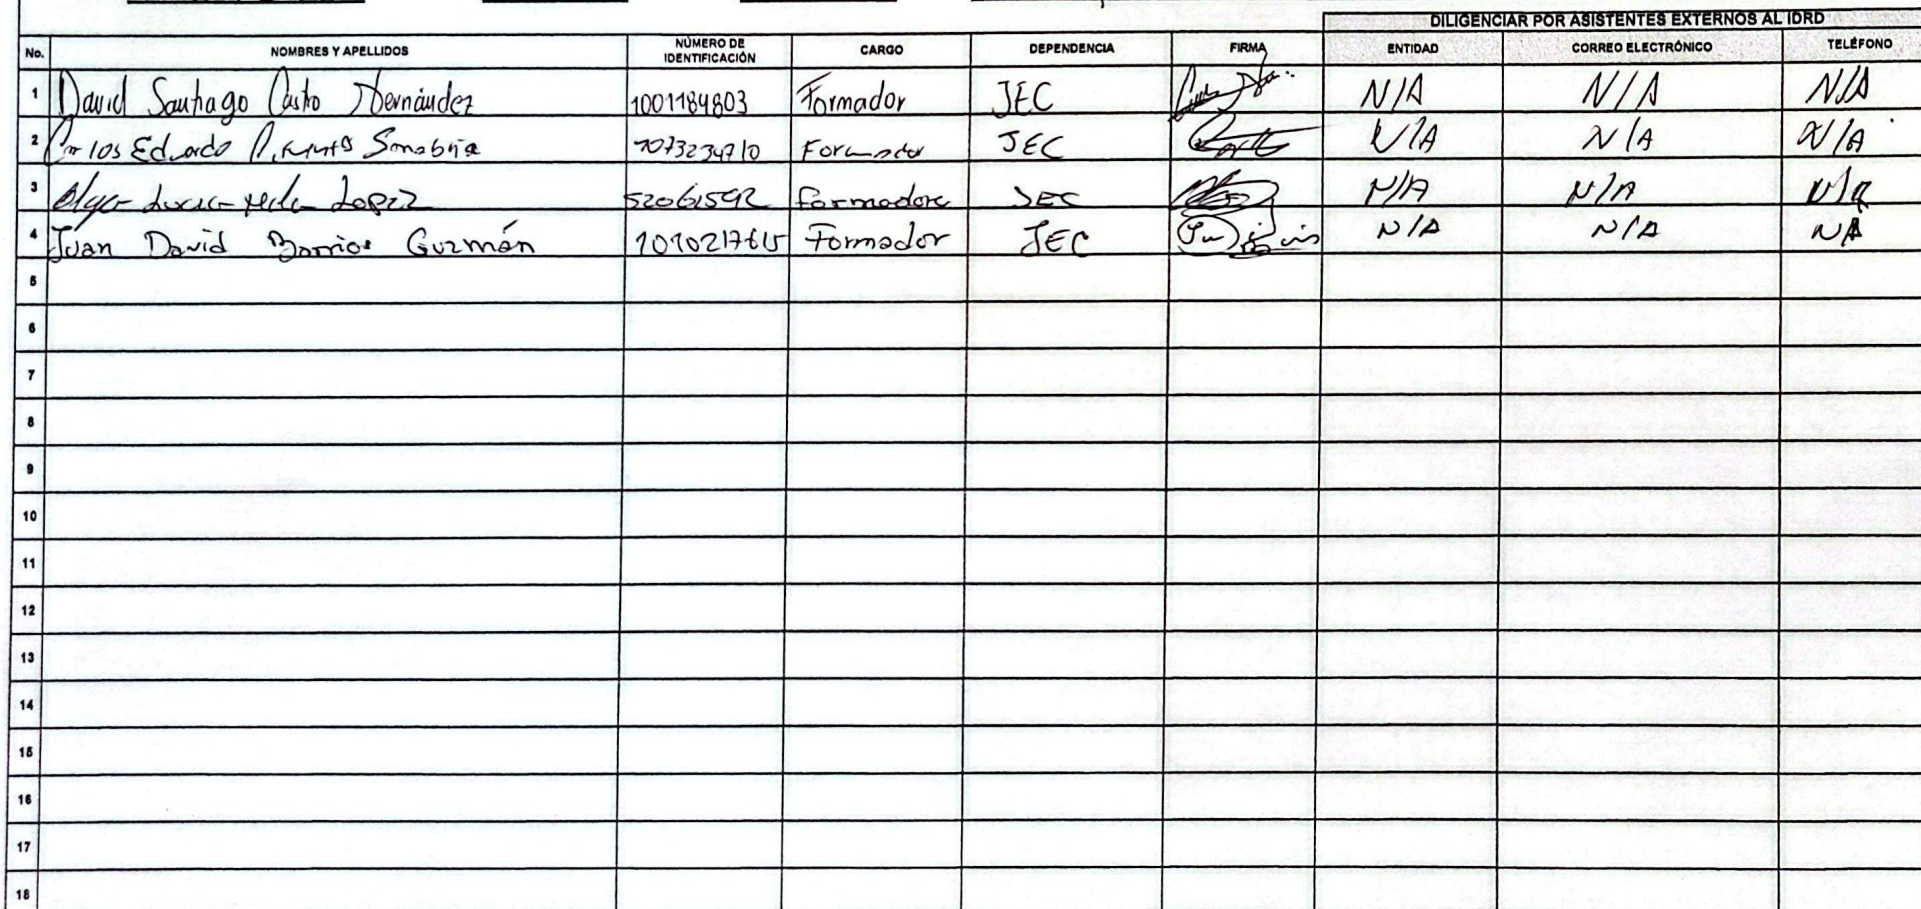 DILIGENCIAR POR ASISTENTES EXTERNOS AL IDRD
No. NOMBRES Y APELLIDOS NÚMERO DE IDENTIFICACIÓN CARGO DEPENDENCIA FIRMA ENTIDAD CORREO ELECTRÓNICO TELÉFONO
1 David Santiago Castro Hernández 1001184803 Formador JEC N/A N/A N/A
2 Carlos Eduardo Sanabria 1073234710 Formador JEC N/A N/A N/A
3 Olga Lucia Lopez 52061592 Formadora JEC N/A N/A N/A
4 Juan David Barrios Guzmán 1010217615 Formador JEC N/A N/A NA
5
6
7
8
9
10
11
12
13
14
15
16
17
18